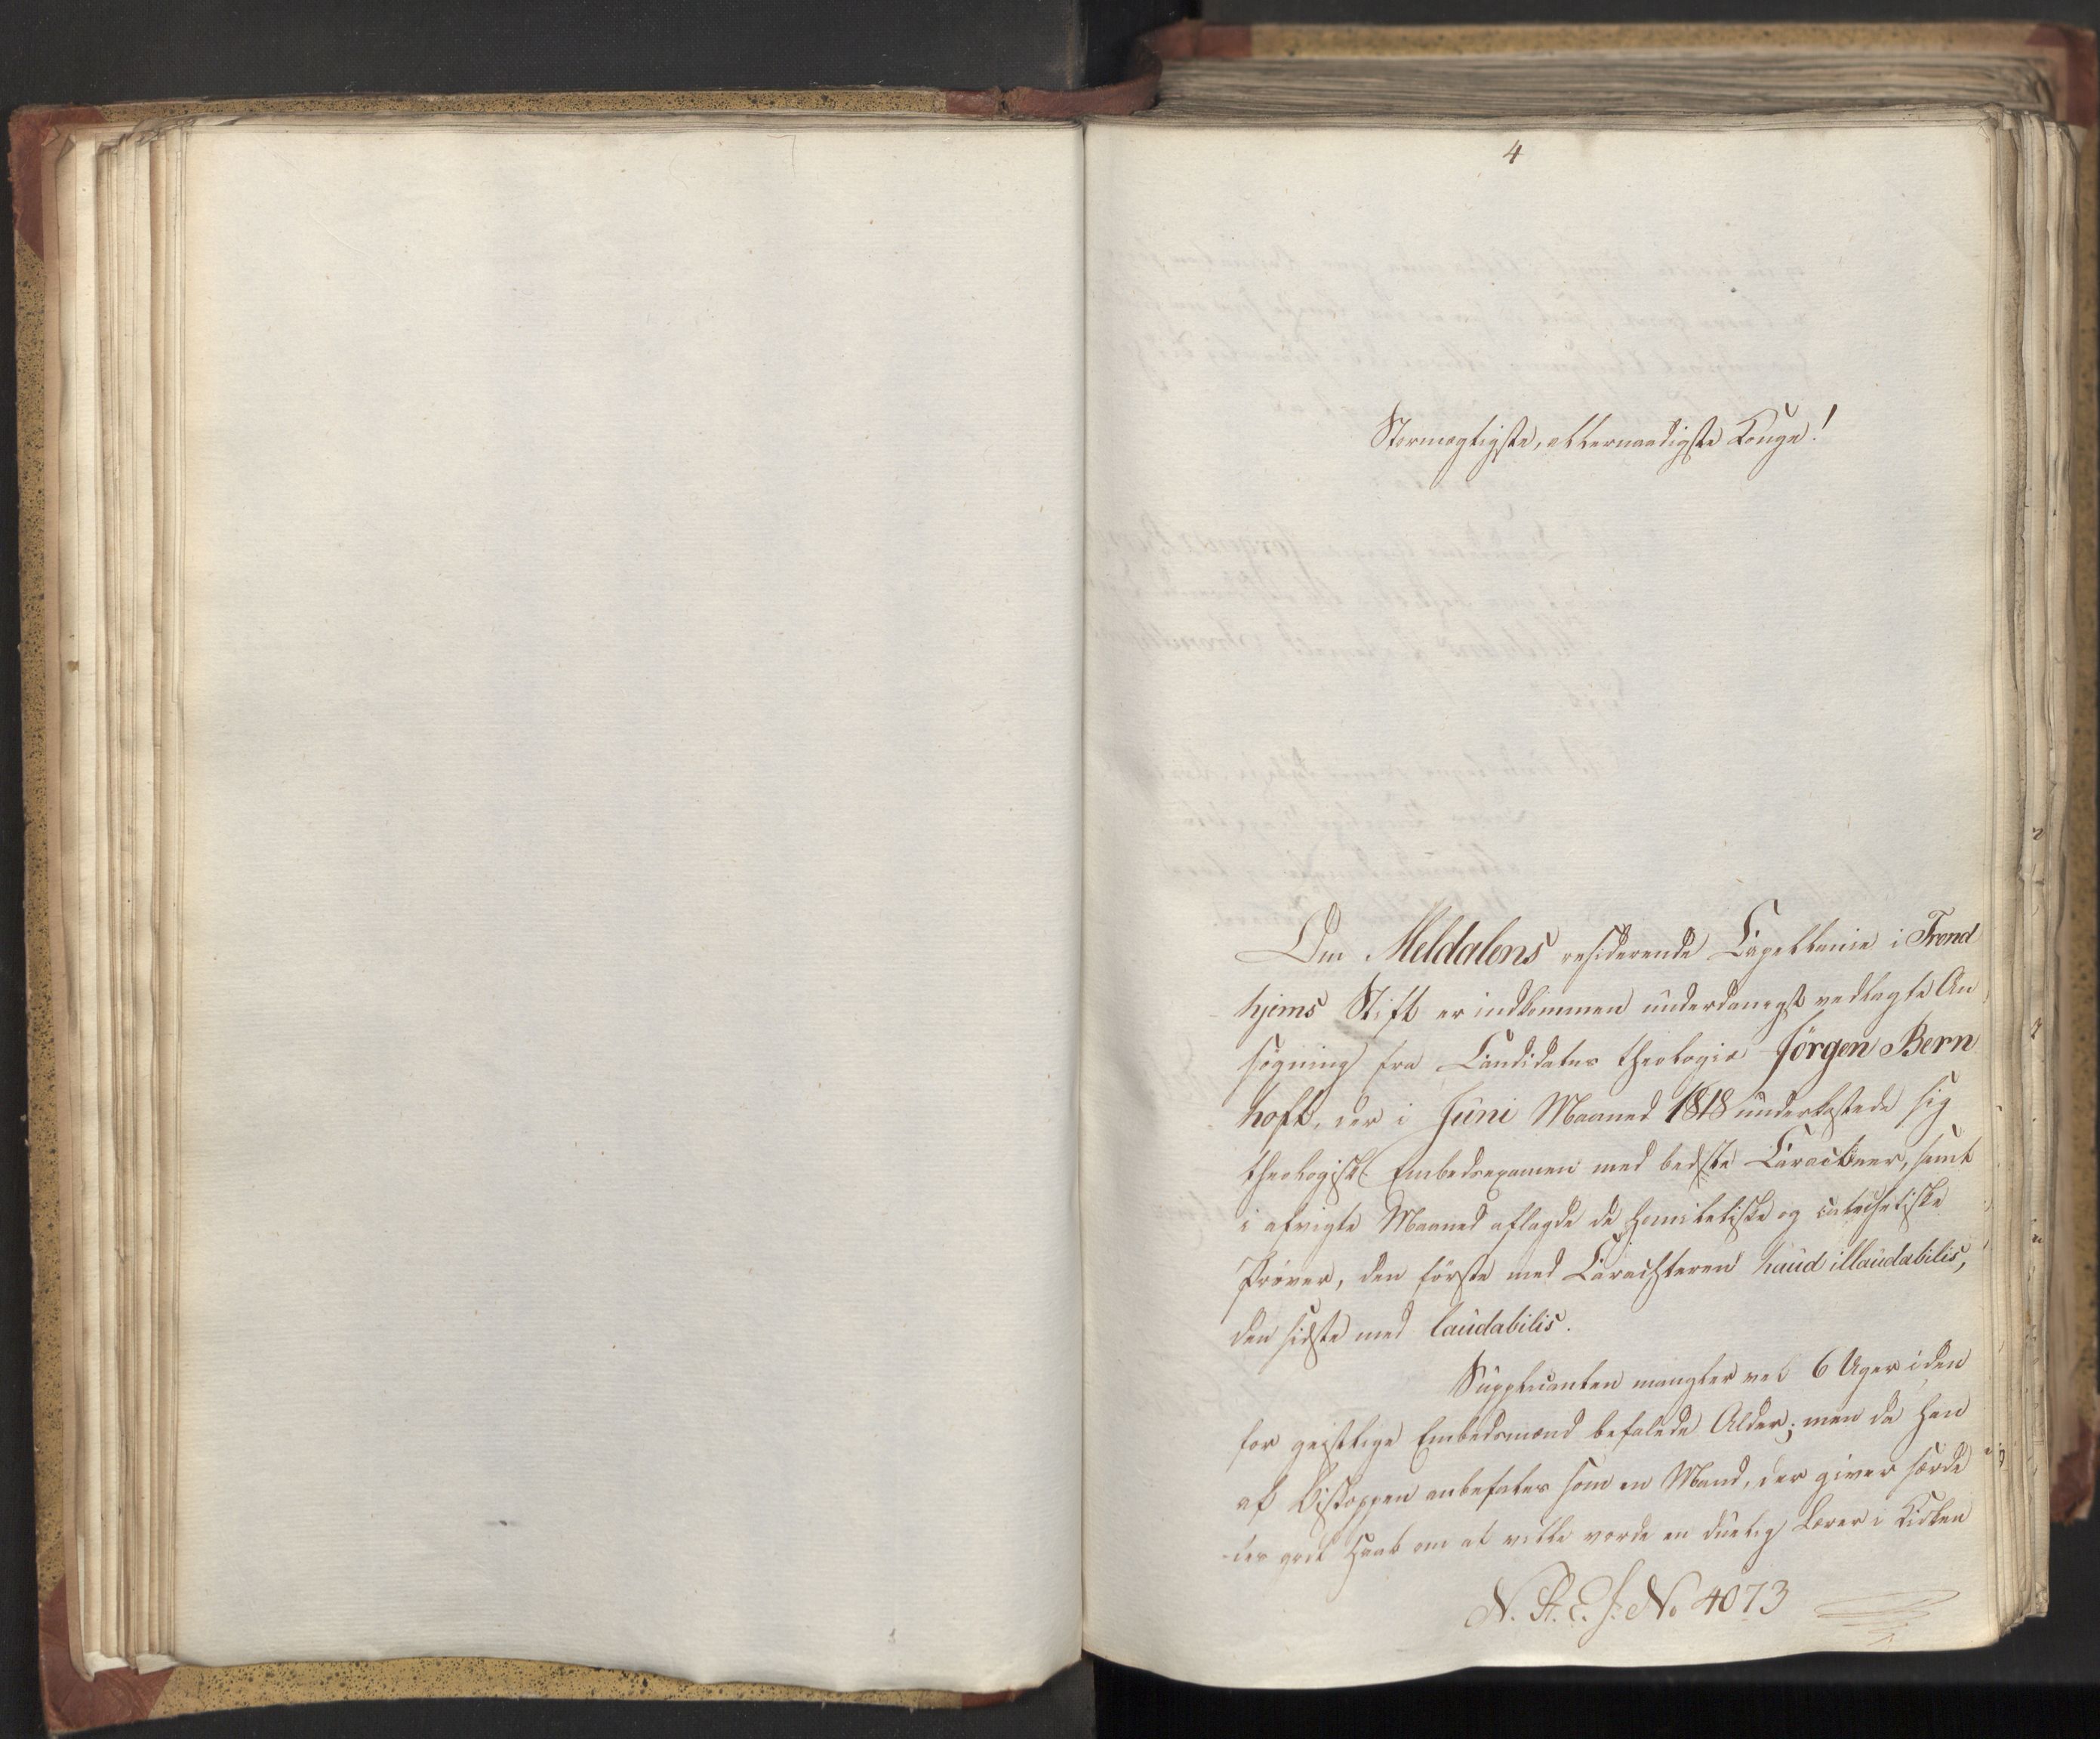 4
Stormægtigste, allernaadigste Konge!
Om Meldalens residerende Capellanie i Trond
hjems Stift er indkommen underdanigst vedlagte An
søgning fra Candidatus theologiæ Jörgen Bern
hoft, der i Juni Maaned 1818 underkastede sig
theologisk Embedsexamen med bedste Caracteer, samt
i afvigte Maaned aflagde de homiletiske og catechetiske
Prøver, den første med Carachteren haud illaudabilis,
den sidste med laudabilis.
Supplicanten mangler vel 6 Uger i den
for geistlige Embedsmænd befalede Alder; men da han
af Biskoppen anbefales som en Mand, der giver særde
-les godt Haab om at ville vorde en duelig Lærer i Kirken
N. St. E. J. No 4073